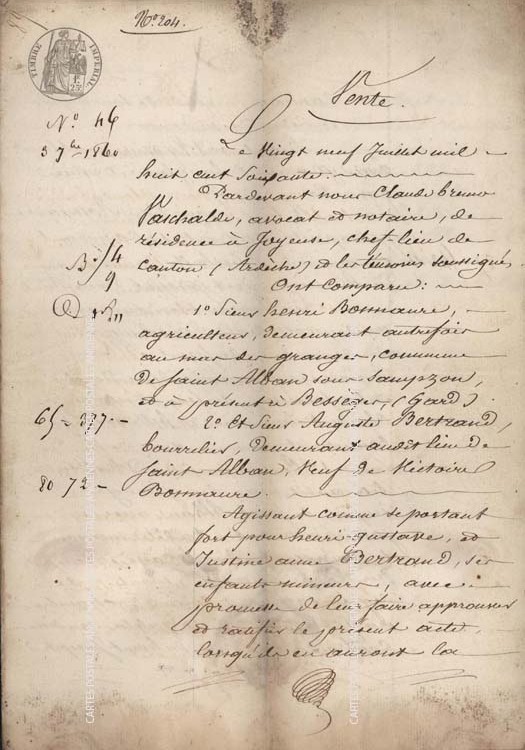 N.º 204.
TIMBRE IMPERIAL
Vente.
N.º 46
3 7bre 1860
Le Vingt neuf Juillet mil
huit cent soixante.
Pardevant nous Claude bruno
Paschalde, avocat et notaire, de
résidence à Joyeuse, chef-lieu de
canton (Ardèche) et les témoins soussignés.
Ont Comparu :
1º Sieur henri Bonnaure,
agriculteur, demeurant autrefois
au mas des granges, commune
De Saint Alban sous Sampzon,
et à présent à Bessèges, (Gard).
65 = 337. -
2º Et Sieur Auguste Bertrand,
bourrelier, demeurant audit lieu de
80 72 -
Saint Alban, Veuf de Victoire
Bonnaure.
Agissant comme se portant
fort pour henri-gustave, et
Justine anne Bertrand, ses
enfants mineurs, avec
promesse de leur faire approuver
et ratifier le présent acte
lorsqu'ils en auront la
CARTES POSTALES ANCIENNES